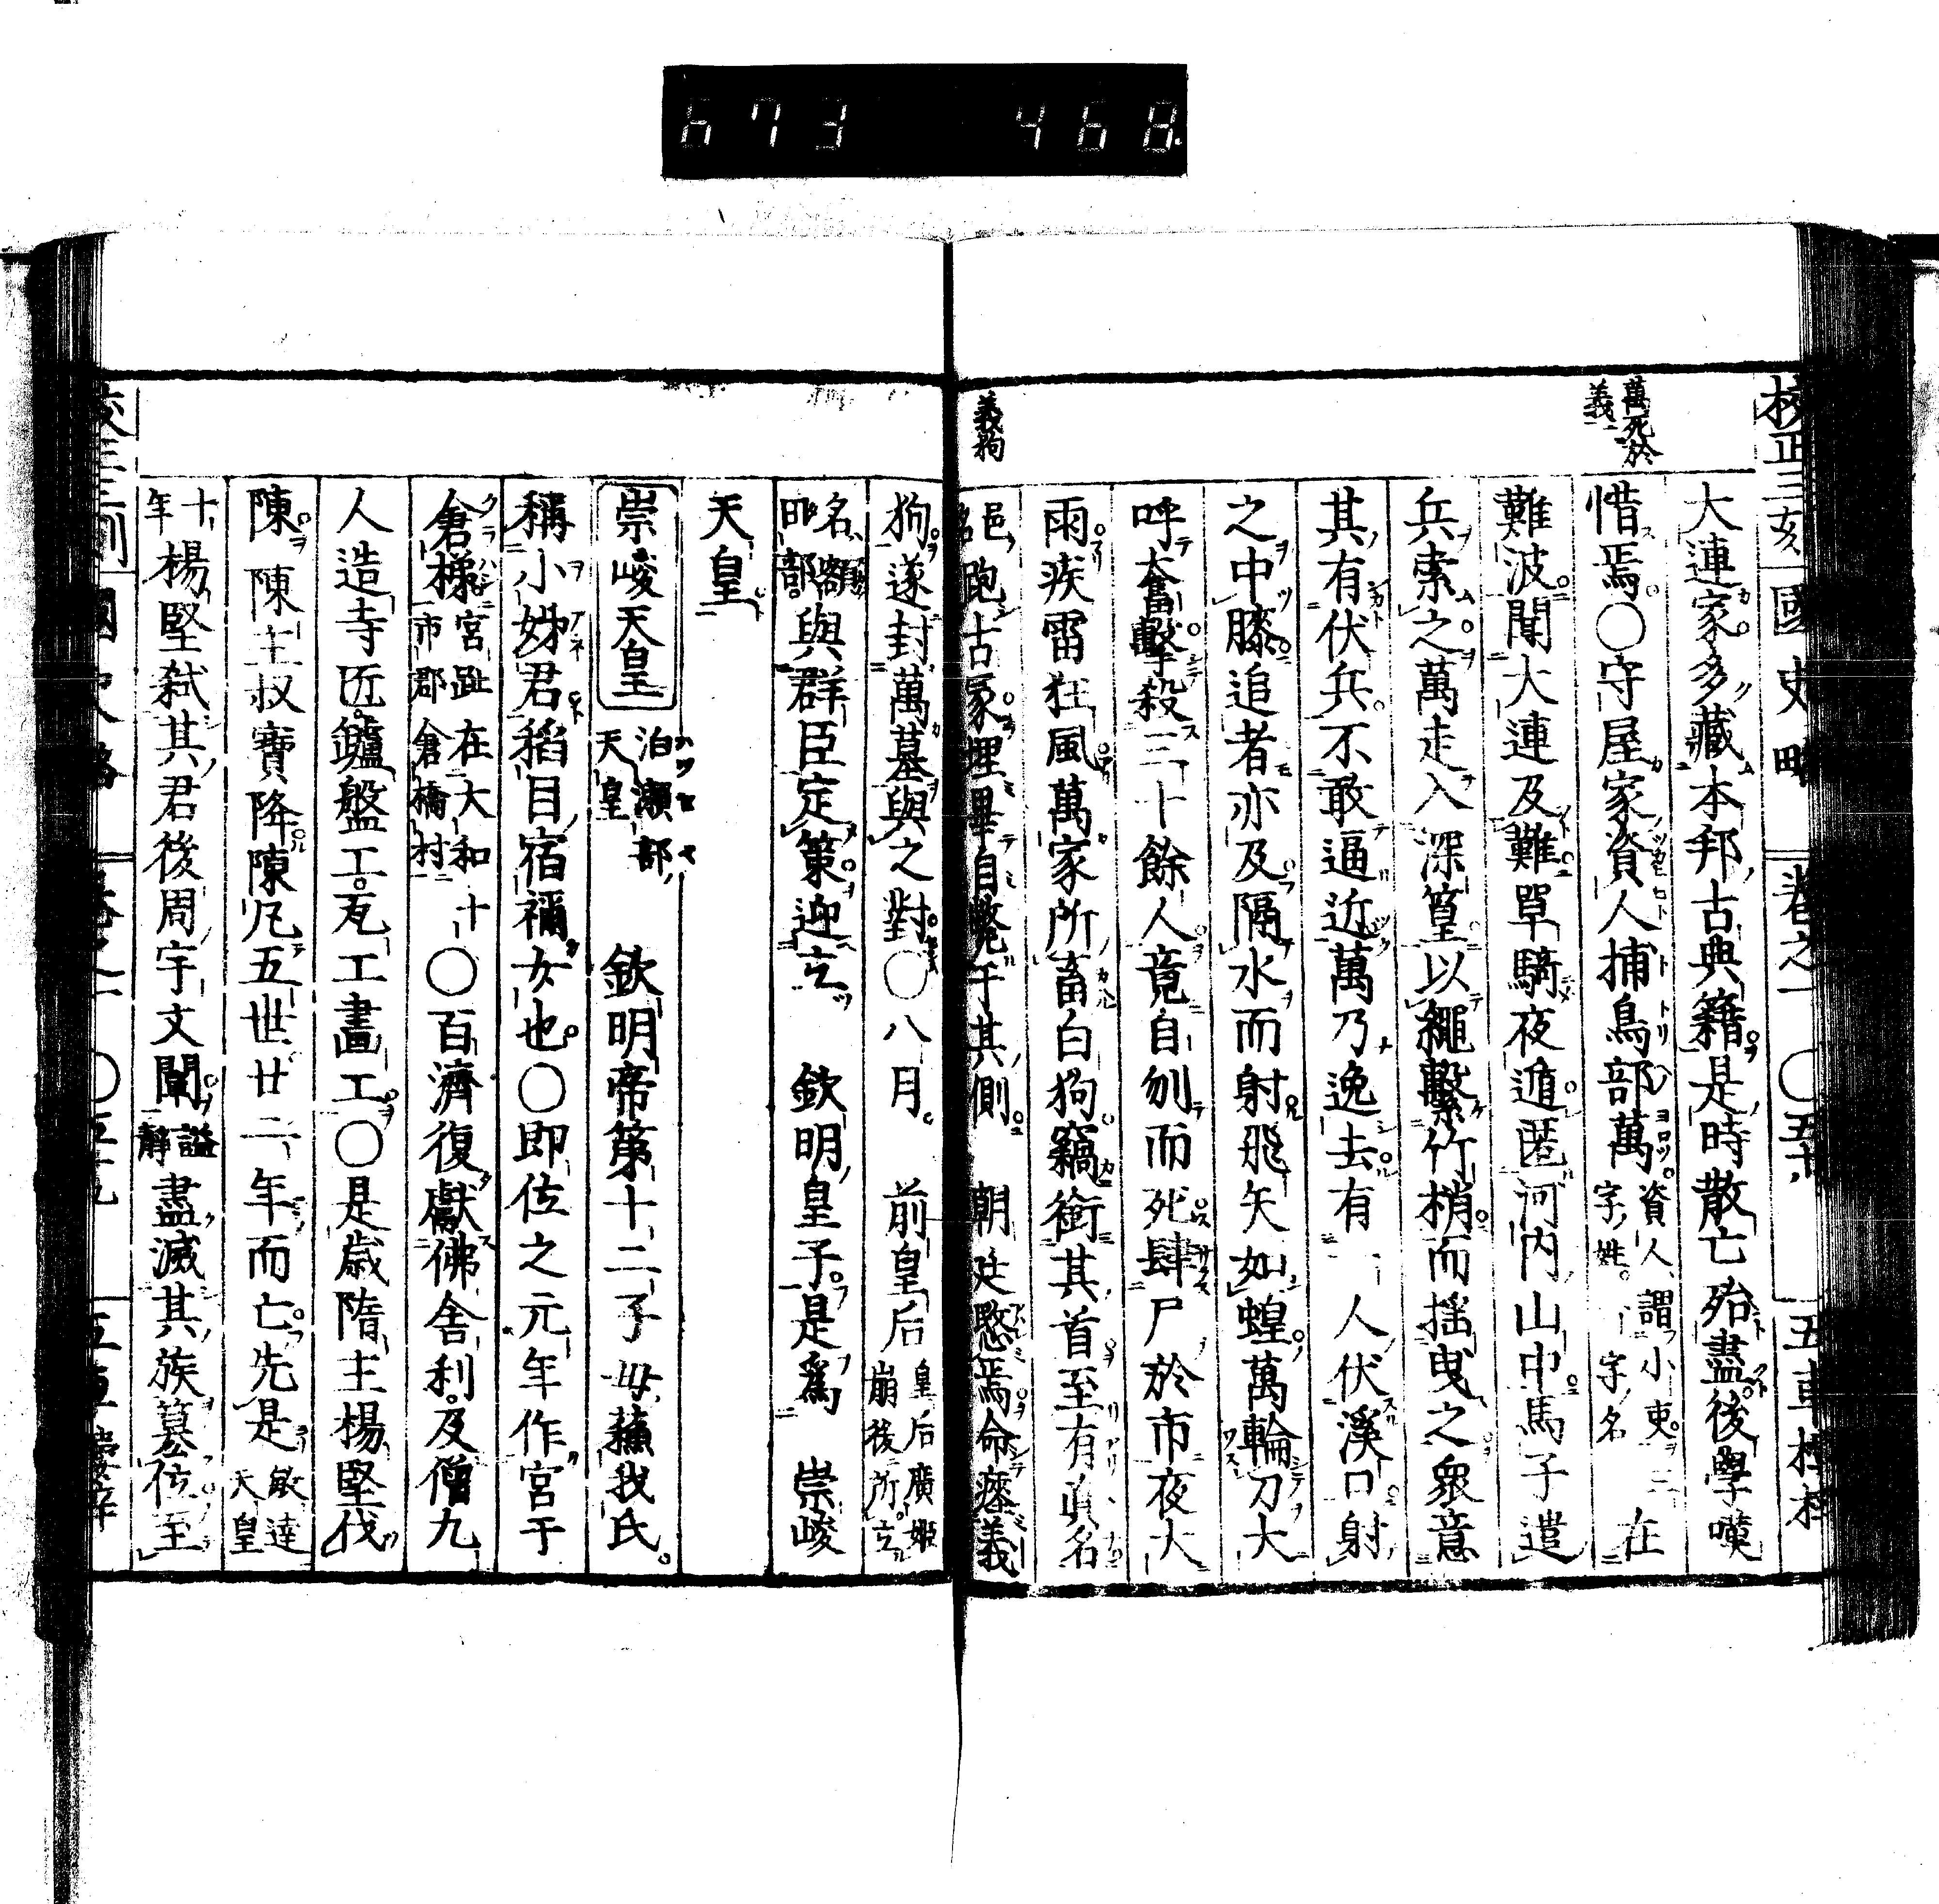 673 468
校正三刻 國史略 卷之一 〇五十
萬死於
義
大連家多藏本邦古典籍是時散亡殆盡後學嘆
惜焉〇守屋家資人捕鳥部萬資人謂小吏二字姓一字名在
難波聞大連及難單騎夜遁匿河內山中馬子遣
兵索之萬走入深篁以繩繫竹梢而搖曳之眾意
其有伏兵不敢逼近萬乃逸去有一人伏溪口射
之中膝追者亦及隔水而射飛矢如蝗萬輪刀大
呼奮擊殺三十餘人竟自刎而死肆尸於市夜大
雨疾雷狂風萬家所畜白狗竊銜其首至有眞名
邑跑古冢埋畢自斃于其側 朝廷愍焉命瘞義
義狗
狗遂封萬墓與之對〇八月 前皇后皇后廣姬崩後所立
名額田部與群臣定策迎立 欽明皇子是爲 崇峻
天皇
崇峻天皇 泊瀨部天皇 欽明帝第十二子母蘇我氏
稱小姊君稻目宿禰女也〇即位之元年作宮于
倉梯宮趾在大和十市郡倉橋村〇百濟復獻佛舍利及僧九
人造寺匠鑪盤工瓦工畫工〇是歲隋主楊堅伐
陳陳主叔寶降陳凡五世廿二年而亡先是敏達天皇
十年楊堅弑其君後周宇文闡謚靜盡滅其族簒位至